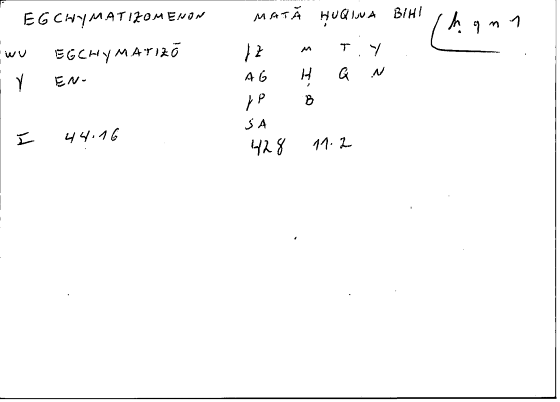 EGCHYMATIZOMENON MATĀ ḤUQINA BIHI ḥqn1
WU EGCHYMATIZŌ JZ M T Y
Y EN- AG Ḥ Q N
JP B
SA
I 44.16 428 11.2